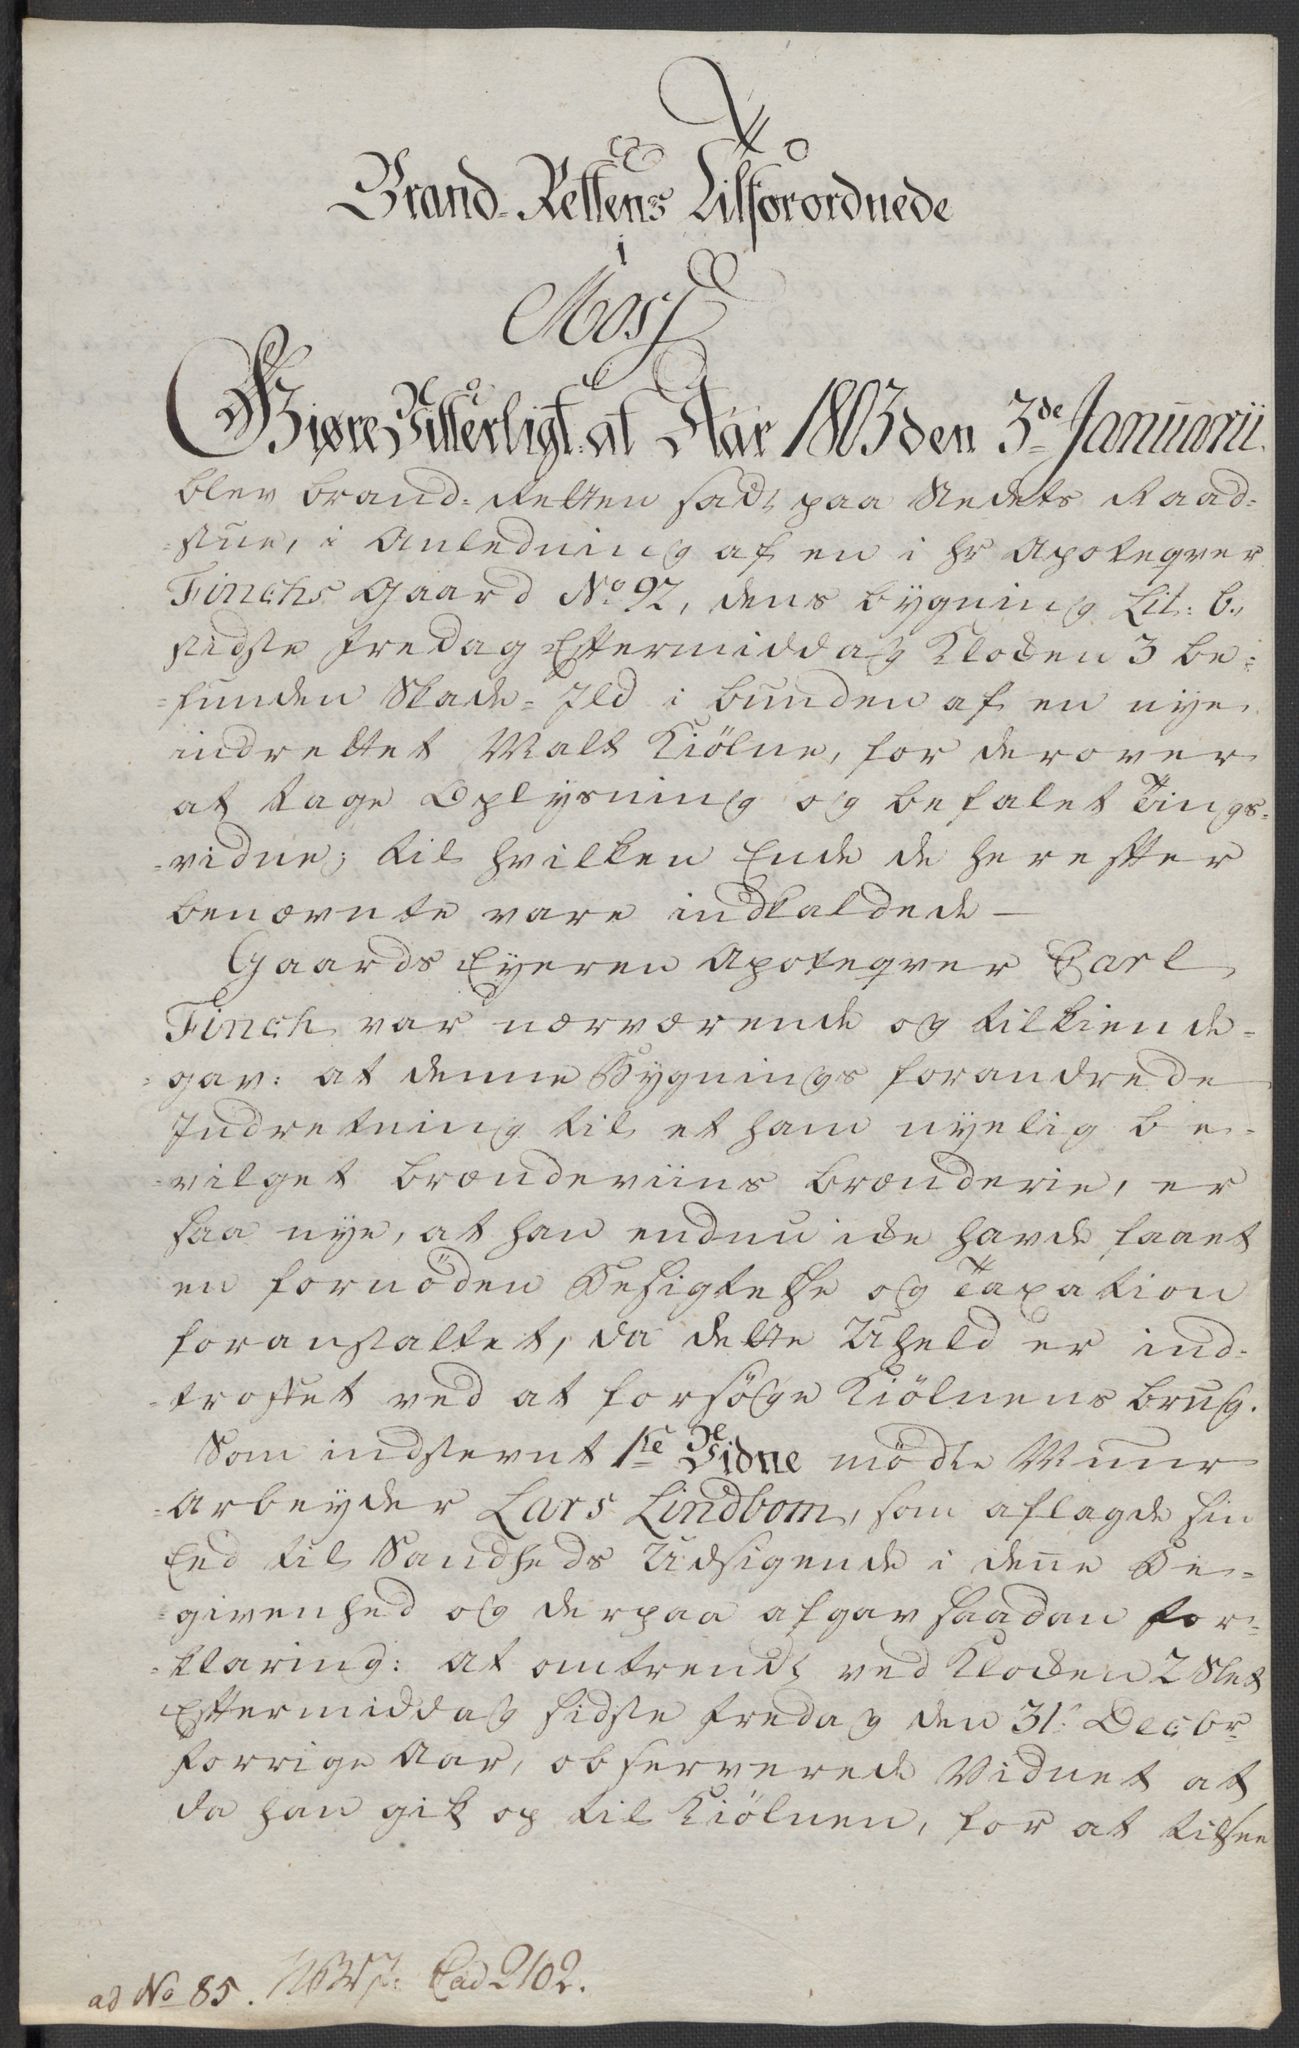 Brand-Rettens Tilforordnede
i
Moss
Giøre Vitterligt at Aar 1803 den 3de Januarii
blev brand-Retten sadt paa Stedets Raad-
-stue, i Anledning af en i Hr Apoteqver
Finchs Gaard No 92, dens bygning Lit: b.,
sidste Fredag Eftermiddag Klocken 3 be-
-funden Skade-Ild i bunden af en nye
indrettet Malt Kiölne, for derover
at tage Oplysning og befalet Tings-
-vidne; til hvilken Ende de herefter
benævnte vare indkaldede —
Gaards Eyeren Apoteqver Carl
Finch var nærværende og tilkiende-
-gav: at denne Bygnings forandrede
Indretning til et ham nyelig be-
-vilget brændeviins brænderie, er
saa nye, at han endnu icke havde faaet
en fornöden Besigtelse og Taxation
foranstaltet, da dette Uheld er ind-
-troffet ved at forsöge Kiölnens brug.
Som indstevnt 1te Vidne mödte Muur
-arbeyder Lars Lindbom, som aflagde sin
Eed til Sandheds Udsigende i denne Be-
-givenhed og derpaa afgav saadan for-
-klaring: at omtrendt ved Klocken 2 Slet
Eftermiddag sidste Fredag den 31. Decbr
forrige Aar, observerede Vidnet at
da han gik op til Kiölnen, for at tilsee
ad No 85. Cad 2102.